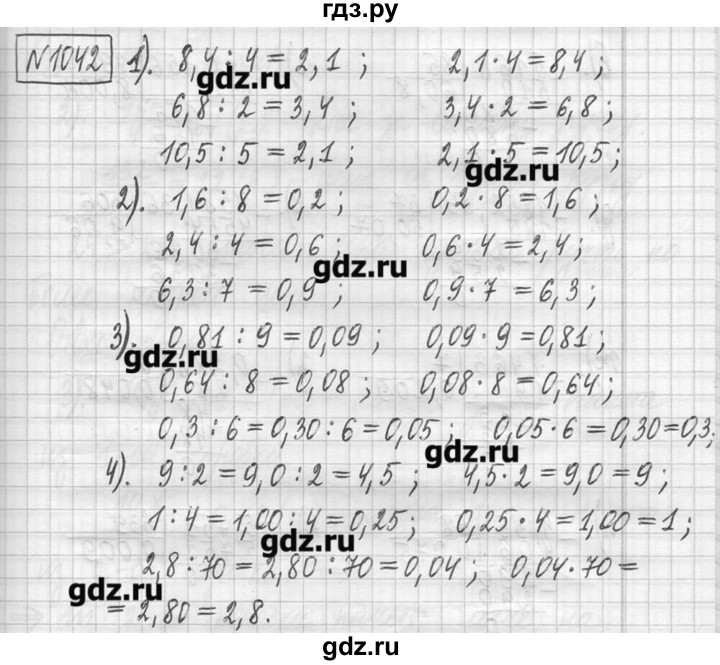 гдз.ру
№1042 1). 8,4 : 4 = 2,1 ; 2,1 · 4 = 8,4 ;
gdz.ru
6,8 : 2 = 3,4 ; 3,4 · 2 = 6,8 ;
10,5 : 5 = 2,1 ; 2,1 · 5 = 10,5 ;
gdz.ru
2). 1,6 : 8 = 0,2 ; 0,2 · 8 = 1,6 ;
2,4 : 4 = 0,6 ; 0,6 · 4 = 2,4 ;
gdz.ru
6,3 : 7 = 0,9 ; 0,9 · 7 = 6,3 ;
3). 0,81 : 9 = 0,09 ; 0,09 · 9 = 0,81 ;
gdz.ru
0,64 : 8 = 0,08 ; 0,08 · 8 = 0,64 ;
0,3 : 6 = 0,30 : 6 = 0,05 ; 0,05 · 6 = 0,30 = 0,3 ;
gdz.ru
4). 9 : 2 = 9,0 : 2 = 4,5 ; 4,5 · 2 = 9,0 = 9 ;
1 : 4 = 1,00 : 4 = 0,25 ; 0,25 · 4 = 1,00 = 1 ;
gdz.ru
2,8 : 70 = 2,80 : 70 = 0,04 ; 0,04 · 70 =
gdz.ru
= 2,80 = 2,8.
gdz.ru